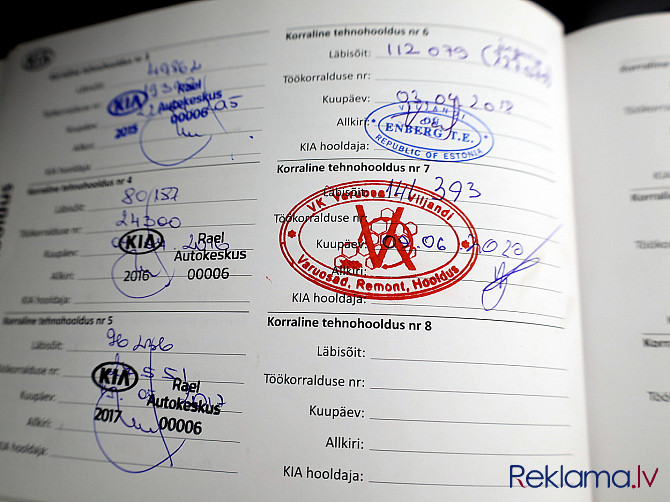 Korraline tehnohooldus nr 3
Läbisõit: 49862
Töökorralduse nr:
KIA
Rael
Autokeskus
00006
Kuupäev:
2015
Allkiri:
KIA hooldaja:
Korraline tehnohooldus nr 4
Läbisõit: 80157
Töökorralduse nr: 24300
Kuupäev:
KIA
Rael
Autokeskus
00006
Allkiri:
2016
KIA hooldaja:
Korraline tehnohooldus nr 5
Läbisõit: 96236
Töökorralduse nr:
KIA
Rael
Autokeskus
00006
Kuupäev:
Allkiri:
2017
KIA hooldaja:
Korraline tehnohooldus nr 6
Läbisõit: 112 079
Töökorralduse nr:
Kuupäev: 03.04.2018
VILJANDI
08
Allkiri:
ENBERG T.E.
REPUBLIC OF ESTONIA
KIA hooldaja:
Korraline tehnohooldus nr 7
Läbisõit: 141 393
VK Varuosad Viljandi
Töökorralduse nr:
Kuupäev: 09.06.2020
Allkiri:
Varuosad, Remont, Hooldus
KIA hooldaja:
Korraline tehnohooldus nr 8
Läbisõit:
Töökorralduse nr:
Kuupäev:
Allkiri:
KIA hooldaja:
Reklama.lv